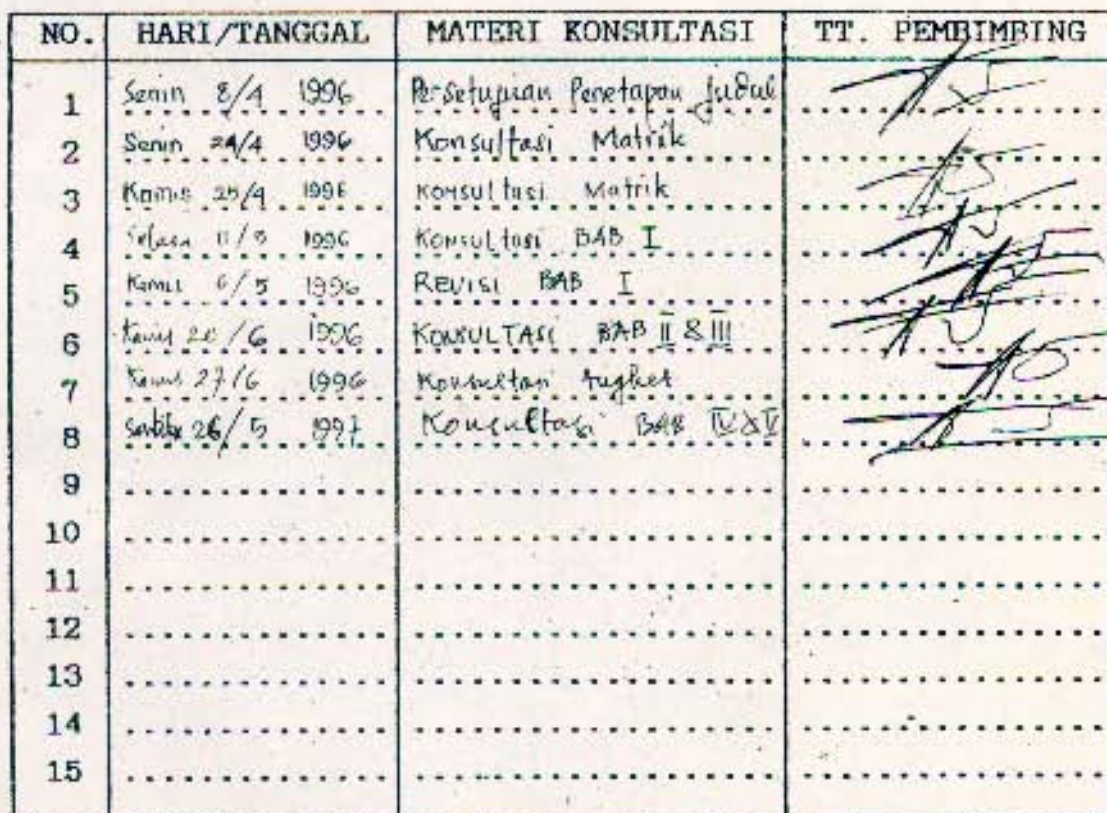 NO. HARI/TANGGAL MATERI KONSULTASI TT. PEMBIMBING
1 Senin 8/4 1996 Persetujuan Penetapan Judul
2 Senin 24/4 1996 Konsultasi Matrik
3 Kamis 25/4 1996 Konsultasi Matrik
4 Selasa 1996 Konsultasi BAB I
5 Kamis 6/5 1996 REVISI BAB I
6 Kamis 20/6 1996 KONSULTASI BAB II & III
7 Kamis 27/6 1996 Konsultasi Angket
8 26/5 1997 Konsultasi BAB IV & V
9
10
11
12
13
14
15